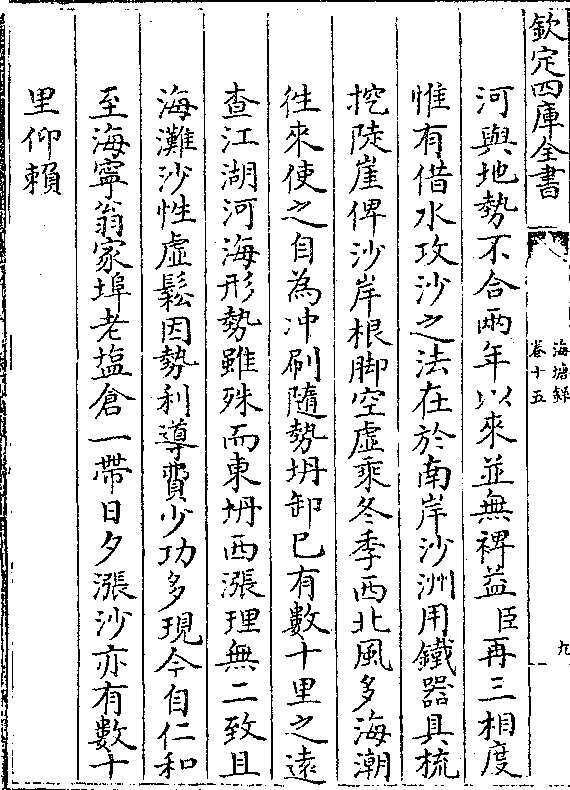 欽定四庫全書
海塘錄
卷十五
九
河與地勢不合兩年以來並無裨益臣再三相度
惟有借水攻沙之法在於南岸沙洲用鐵器具梳
挖陡崖俾沙岸根脚空虛乘冬季西北風多海潮
徃來使之自為冲刷隨勢坍卸已有數十里之遠
查江湖河海形勢雖殊而東坍西漲理無二致且
海灘沙性虛鬆因勢利導費少功多現今自仁和
至海寧翁家埠老塩倉一帶日夕漲沙亦有數十
里仰賴